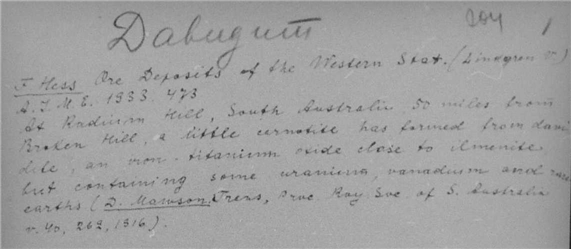 Dabugum 204 1
F. Hess Ore Deposits of the Western Stat. (Lindgren V.)
A. I. M. E. 1933. 473
At Radium Hill, South Australia 50 miles from
Broken Hill, a little carnotite has formed from davi
dite, an iron-titanium oxide close to ilmenite
but containing some uranium, vanadium and rare
earths (D. Mawson, Trans, Proc. Roy Soc. of S. Australia
v. 40, 262, 1916).